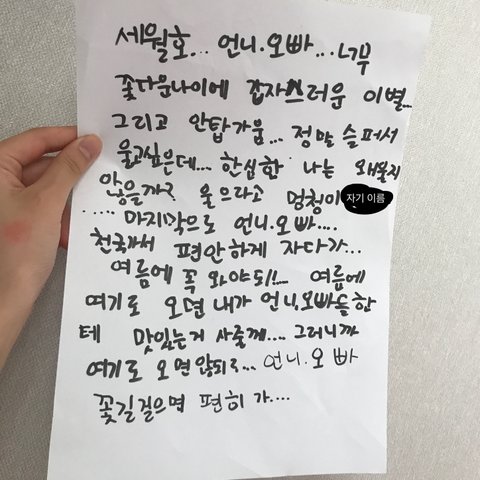 세월호... 언니.오빠...너무
꽃다운나이에 갑자스러운 이별...
그리고 안탑가움... 정말 슬퍼서
울고싶은데... 한심한 나는 왜울지
않을까? 울으라고 멍청이 자기 이름
..... 마지막으로 언니.오빠....
천국가서 편안하게 자다가...
여름에 꼭 와야되!!... 여름에
여기로 오면 내가 언니,오빠들한
테 맛있는거 사줄께.... 그러니까
여기로 오면않되ㄹ... 언니.오빠
꽃길걸으며 편히 가....